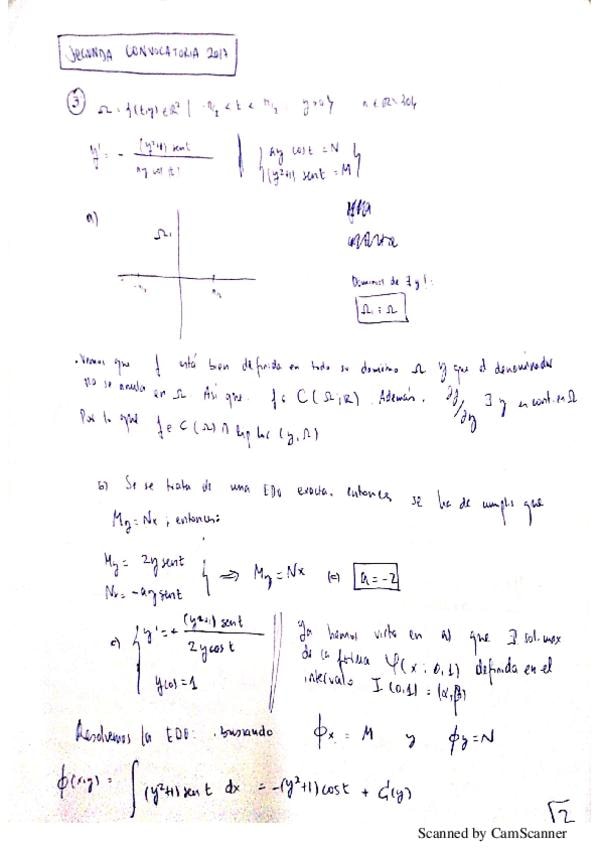 SEGUNDA CONVOCATORIA 2017
③ Ω = {(t,y) ∈ R² | -π/2 < t < π/2 y>0} a ∈ R-{0}
y' = - (y²+1) sent / ay cos(t) { ay cost = N
(y²+1) sent = M }
a)
Ω₁
-π/2 π/2
Dominios de ∃ y !:
Ω₁ = Ω
. Veamos que f está bien definida en todo su dominio Ω y que el denominador
no se anula en Ω Así que f ∈ C(Ω;R). Además, ∂f/∂y ∃ y en cont. en Ω
Por lo que f ∈ C(Ω) ∩ Lip loc (y, Ω)
b) Si se trata de una EDO exacta, entonces se ha de cumplir que
My = Nx ; entonces:
My = 2y sent
Nx = -ay sent } ⇒ My = Nx (=) a = -2
c) { y' = + (y²+1) sent / 2y cost
y(0) = 1
Ya hemos visto en a) que ∃ sol. max
de la forma φ(x; 0,1) definida en el
intervalo I(0,1) = (α,β)
Resolvemos la EDO: buscando ϕx = M y ϕy = N
ϕ(x,y) = ∫ (y²+1) sent dx = -(y²+1) cost + G(y)
√2
Scanned by CamScanner